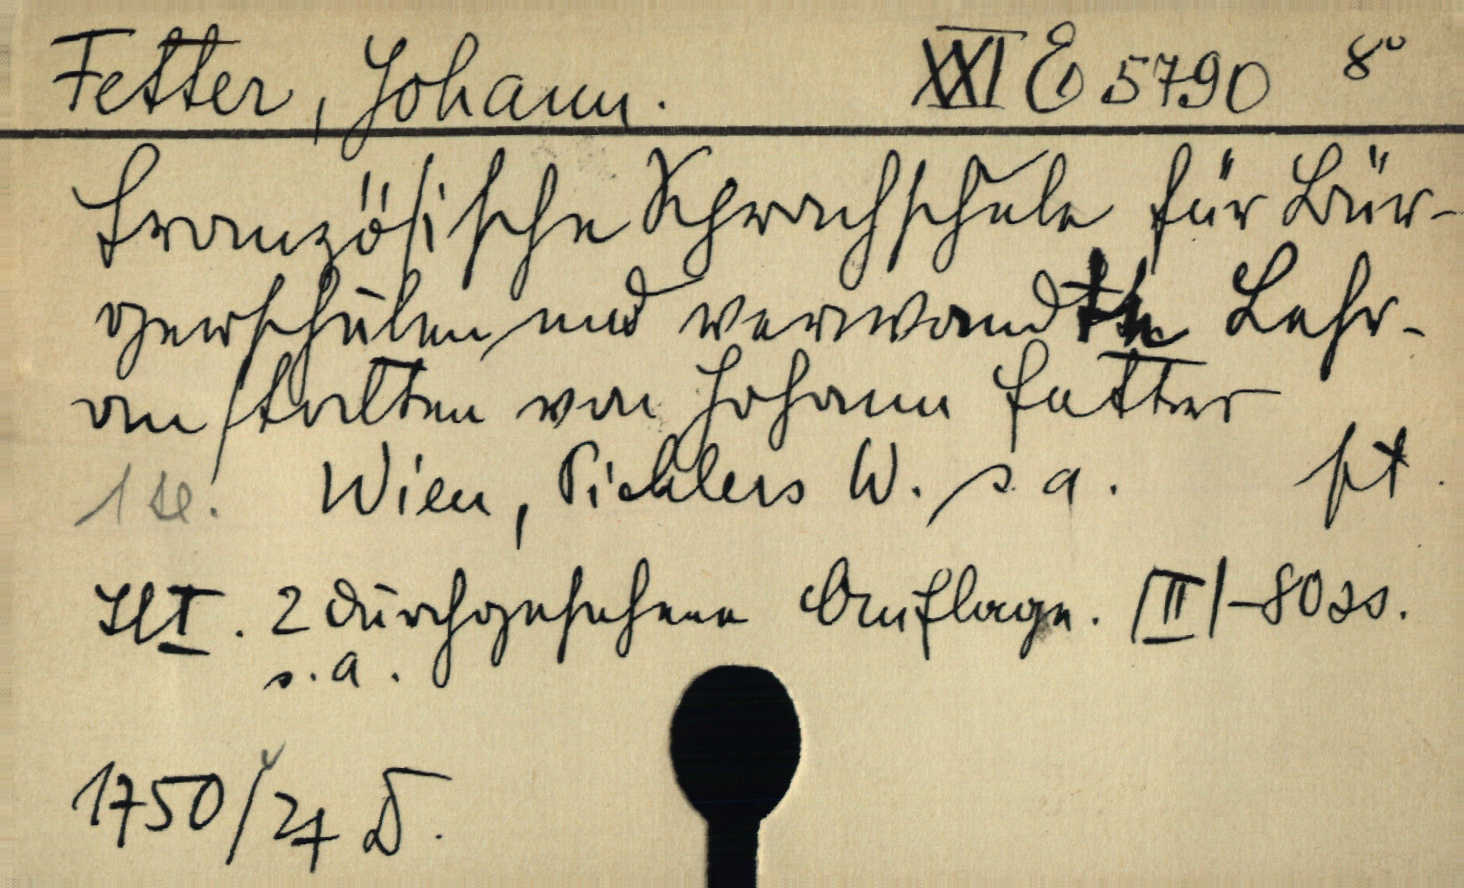 Fetter, Johann. XXI E 5790 8°
Französische Sprachschule für Bür-
gerschulen und verwandte Lehr-
anstalten von Johann Fetter
Wien, Pichlers W. s. a.
2 durchgesehene Auflage. |II|-80 ss.
s. a.
1750/27 D.